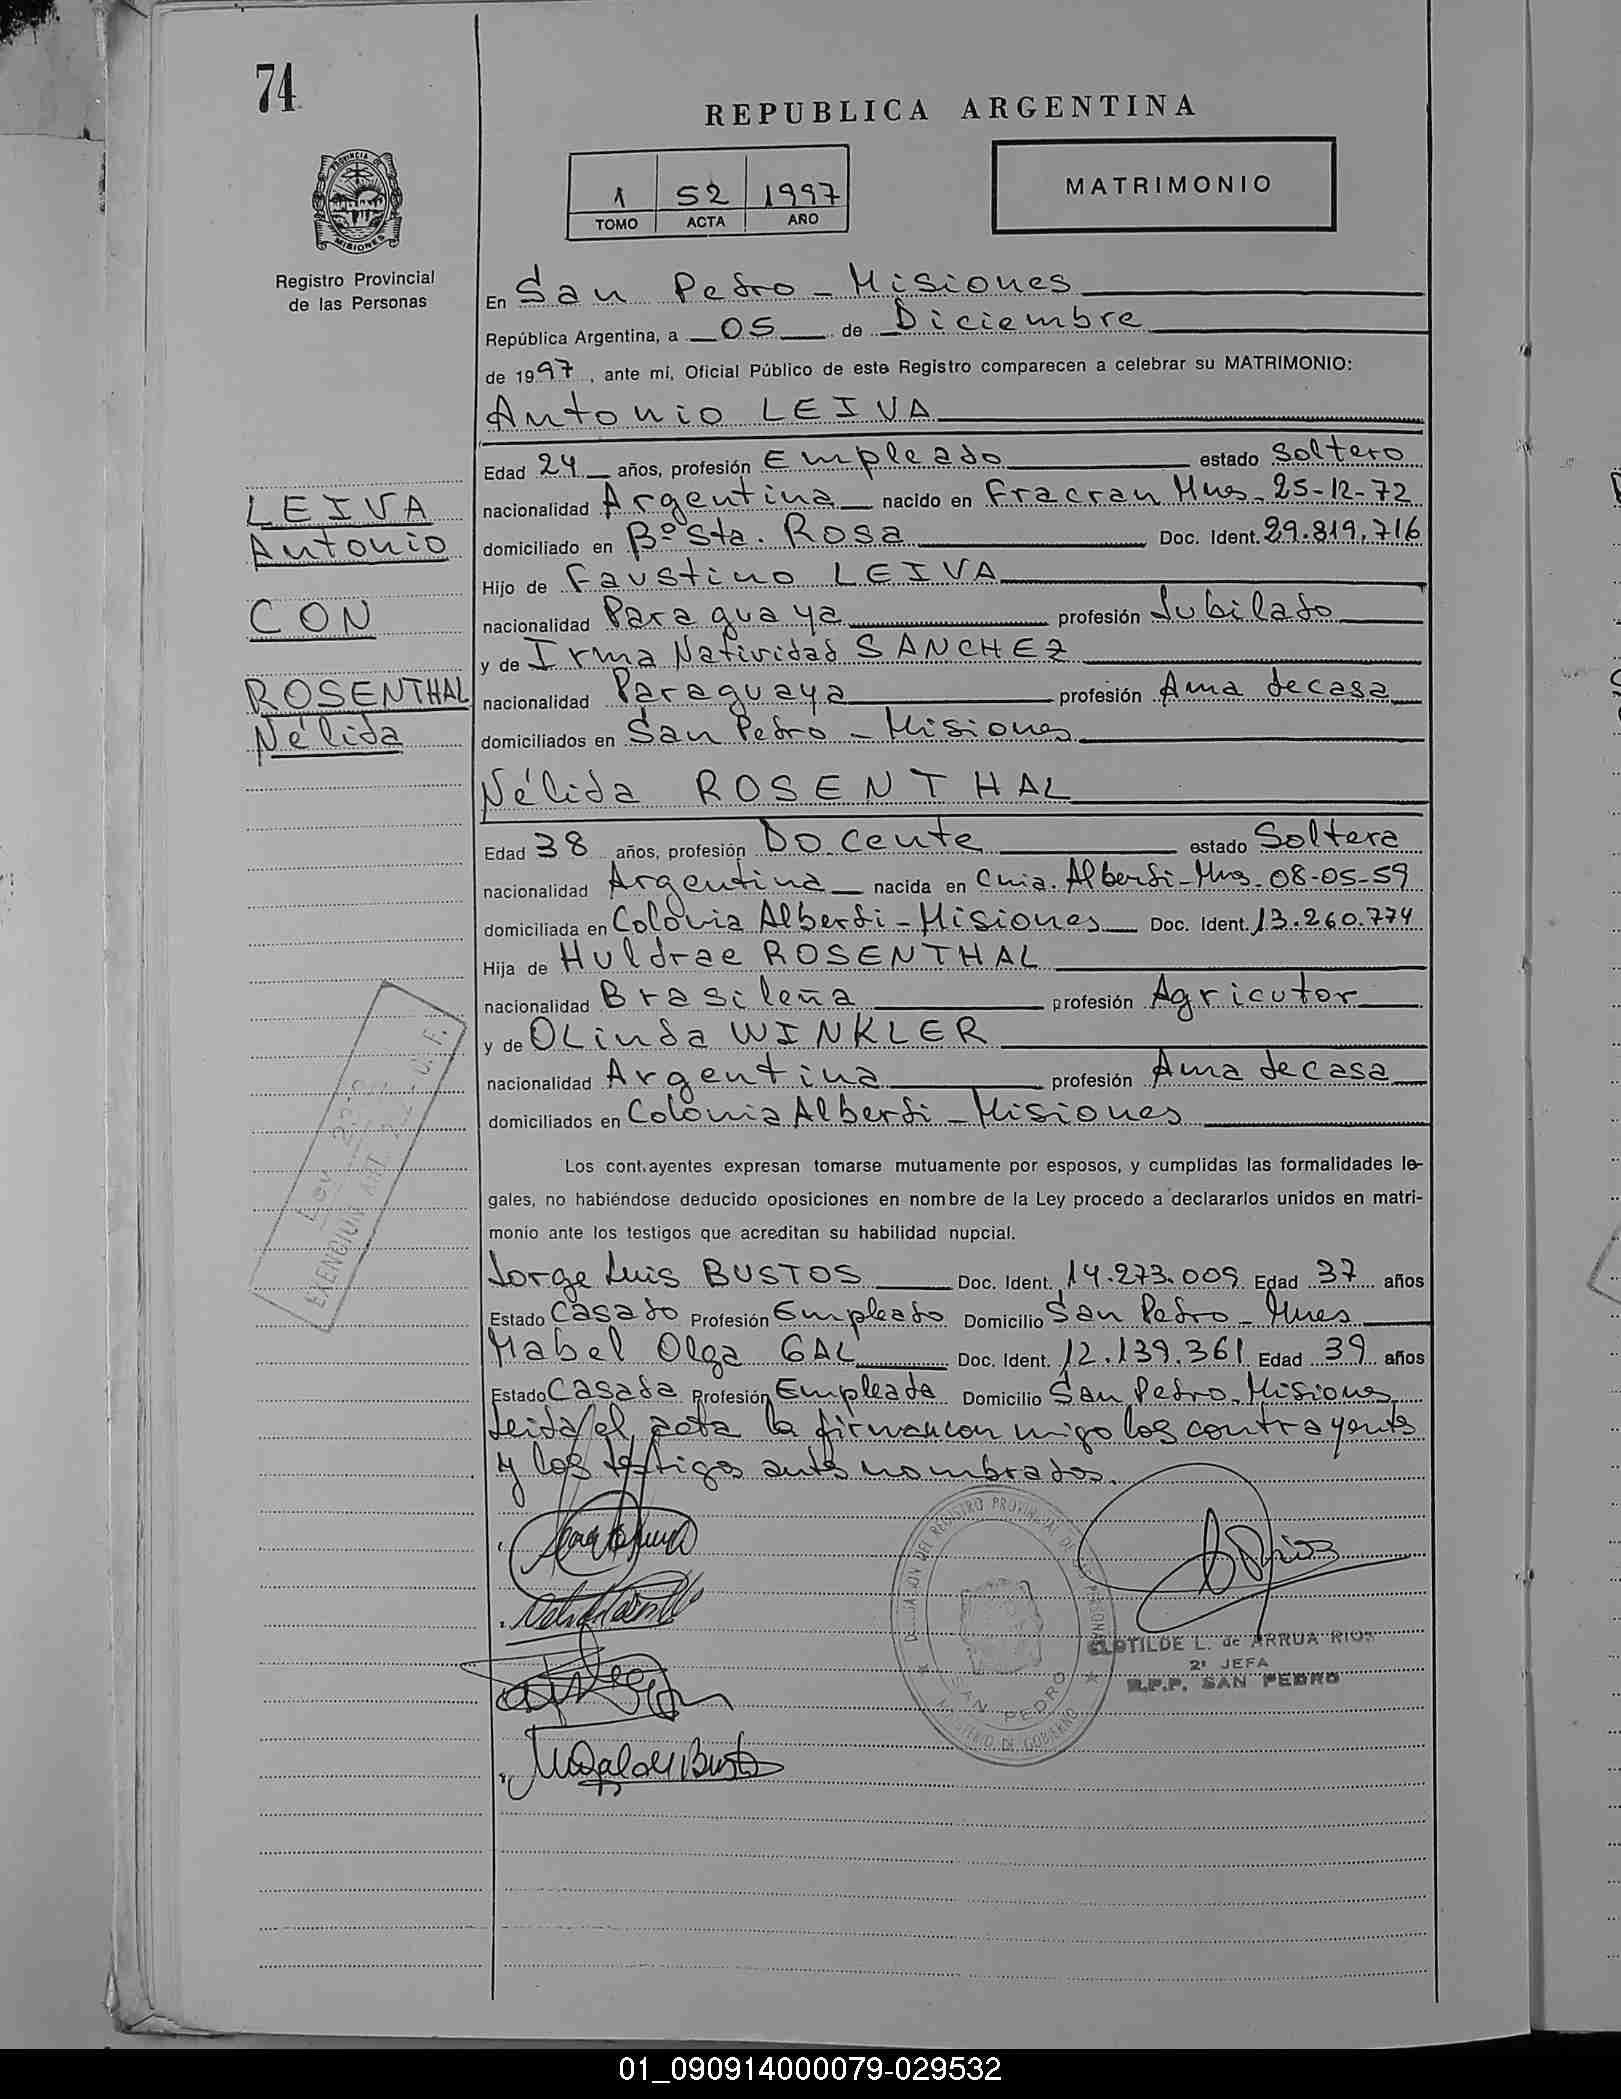 74
REPUBLICA ARGENTINA
PROVINCIA DE
MISIONES
1 52 1997
TOMO ACTA AÑO
MATRIMONIO
Registro Provincial
de las Personas
En San Pedro - Misiones
República Argentina, a 05 de Diciembre
de 1997, ante mí, Oficial Público de este Registro comparecen a celebrar su MATRIMONIO:
Antonio LEIVA
Edad 24 años, profesión Empleado estado Soltero
LEIVA
nacionalidad Argentina nacido en Fracran Mnes. 25-12-72
Antonio
domiciliado en Bº Sta. Rosa Doc. Ident. 29.819.716
Hijo de Faustino LEIVA
CON
nacionalidad Paraguaya profesión Jubilado
y de Irma Natividad SANCHEZ
ROSENTHAL
nacionalidad Paraguaya profesión Ama de casa
Nélida
domiciliados en San Pedro - Misiones
Nélida ROSENTHAL
Edad 38 años, profesión Docente estado Soltera
nacionalidad Argentina nacida en Cnia. Alberdi-Mns. 08-05-59
domiciliada en Colonia Alberdi - Misiones Doc. Ident. 13.260.774
Hija de Huldrae ROSENTHAL
nacionalidad Brasileña profesión Agricutor
y de OLinda WINKLER
nacionalidad Argentina profesión Ama de casa
domiciliados en Colonia Alberdi - Misiones
Ley
EXENCION ART.
Los contrayentes expresan tomarse mutuamente por esposos, y cumplidas las formalidades le-
gales, no habiéndose deducido oposiciones en nombre de la Ley procedo a declararlos unidos en matri-
monio ante los testigos que acreditan su habilidad nupcial.
Jorge Luis BUSTOS Doc. Ident. 14.273.009 Edad 37 años
Estado Casado Profesión Empleado Domicilio San Pedro - Mnes
Mabel Olga GAL Doc. Ident. 12.139.361 Edad 39 años
Estado Casada Profesión Empleada Domicilio San Pedro - Misiones
Leida el acta la firman con migo los contrayentes
y los testigos antes nombrados.
DELEGACION DEL REGISTRO PROVINCIAL DE PERSONAS
SAN PEDRO
MINISTERIO DE GOBIERNO
CLOTILDE L. de ARRUA RIOS
2ª JEFA
R.P.P. SAN PEDRO
01_090914000079-029532